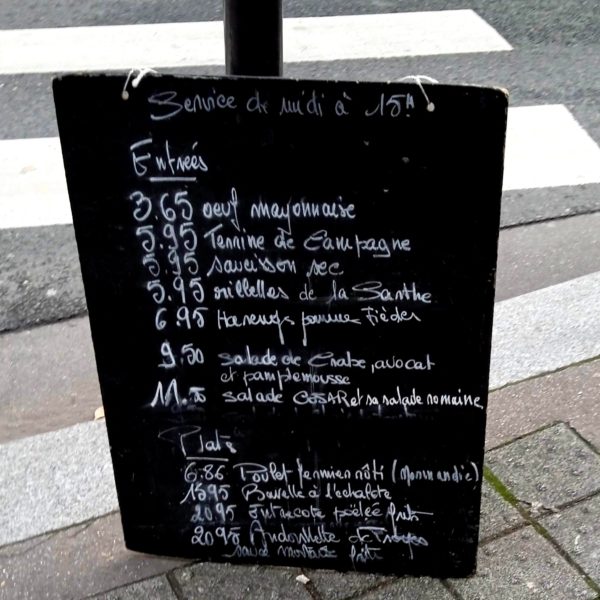 Service de midi à 15H
Entrées
3.65 oeuf mayonnaise
5.95 Terrine de Campagne
5.95 saucisson sec
5.95 rillettes de la Sarthe
6.95 Harengs pommes tièdes
9.50 salade de Crabe, avocat
et pamplemousse
11.50 salade CESAR et sa salade romaine
Plats
6.86 Poulet fermier rôti (Normandie)
1595 Bavette à l'échalote
2095 Entrecote poêlée frits
2095 Andouillette de Troyes
sauce moutarde frit